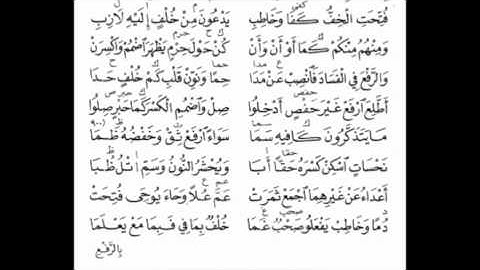 فُتِحَتِ الْخِفُّ كَفَا وَخَاطِبِ يَدْعُونَ مِنْ خُلْفٍ إِلَيْهِ لَازِبِ
وَمِنْهُمُ مِنْكُمْ كَمَا أَوْ أَنْ وَأَنْ كُنْ حَوْلَ حِرْمٍ يَظْهَرَ اضْمُمْ وَاكْسِرَنْ
وَالرَّفْعَ فِي الْفَسَادَ فَانْصِبْ عَنْ مَدَا حِمًا وَنَوِّنْ قَلْبِ كَمْ خُلْفٍ حَدَا
أَطَّلِعَ ارْفَعْ غَيْرَ حَفْصٍ أَدْخِلُوا صِلْ وَاضْمُمِ الْكَسْرَ كَمَا حَبْرٍ صِلُوا
مَا يَتَذَكَّرُونَ كَافِيهِ سَمَا سَوَاءً ارْفَعْ ثِقْ وَخَفْضُهُ ظَمَا
نَحْسَاتِ اسْكِنْ كَسْرَهُ حَقًّا أَبَا وَيُحْشَرُ النُّونُ وَسَمِّ اتْلُ ظُبَا
أَعْدَاءُ عَنْ غَيْرِهِمَا اجْمَعْ ثَمَرَتْ عَمَّ عُلًا وَحَاءَ يُوحَى فُتِحَتْ
دُمًا وَخَاطِبْ يَفْعَلُو صَحْبٌ غَمَا خُلْفٌ بِمَا فِي فَبِمَا مَعْ يَعْلَمَا
بِالرَّفْعِ